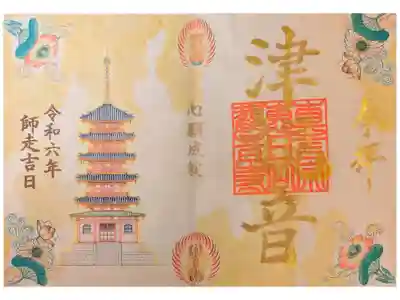 奉拝
津観音
心願成就
令和六年
師走吉日